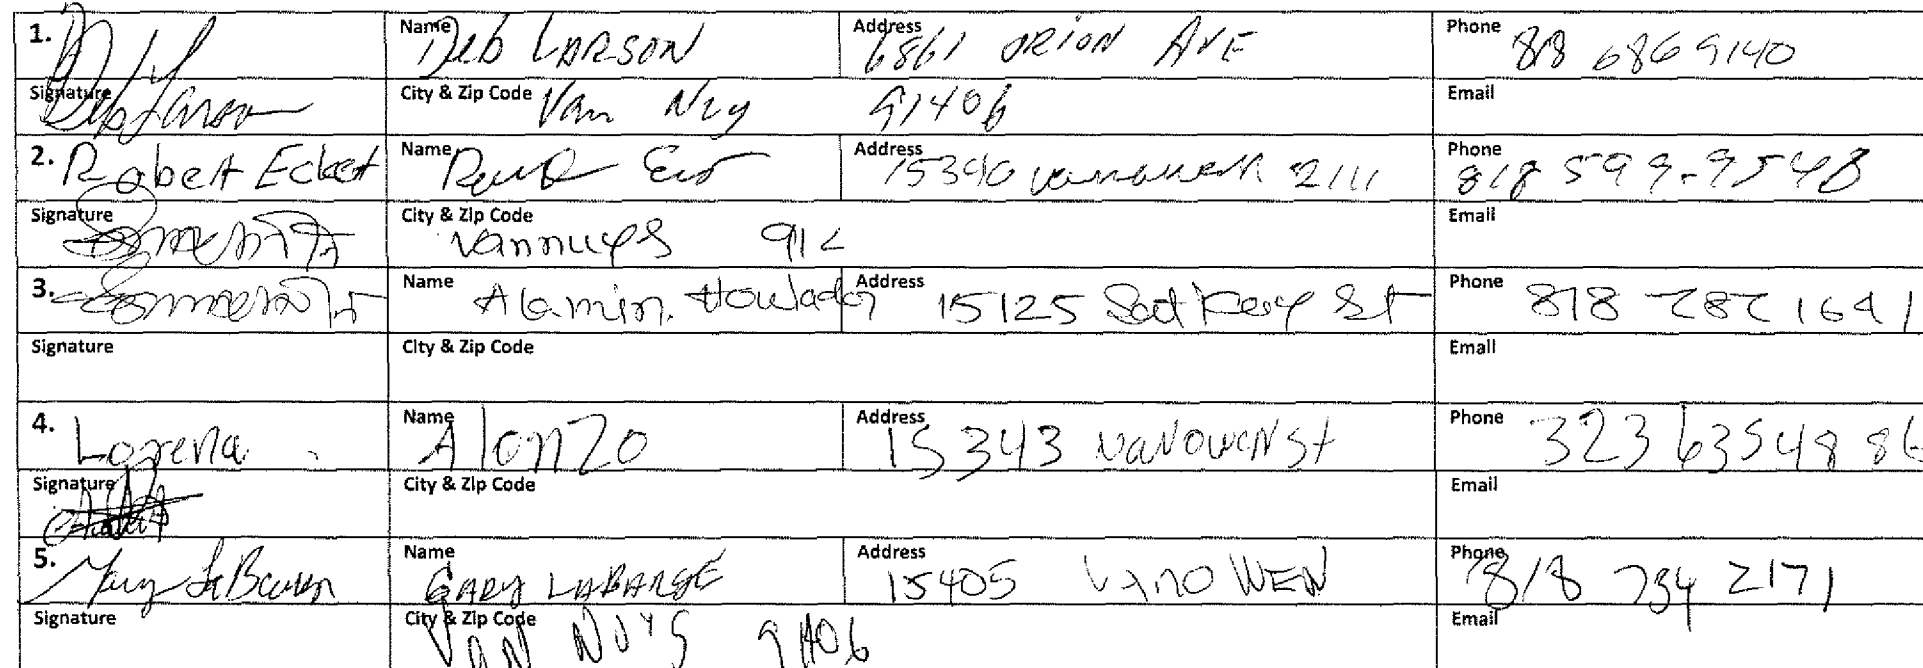 1. Name Deb LARSON Address 6861 ORION AVE Phone 818 686 9140
Signature Deb Larson City & Zip Code Van Nuy 91406 Email
2. Robert Eckert Name Address 15390 2111 Phone 818 599-9548
Signature City & Zip Code Vannuys 912 Email
3. Name Alamin. Howlader Address 15125 Sat St Phone 818 282 1641
Signature City & Zip Code Email
4. Lorena Name Alonzo Address 15343 vanowen st Phone 323 6354886
Signature City & Zip Code Email
5. Name GARY LABARGE Address 15405 VANOWEN Phone 818 734 2171
Signature City & Zip Code VAN NUYS 91406 Email